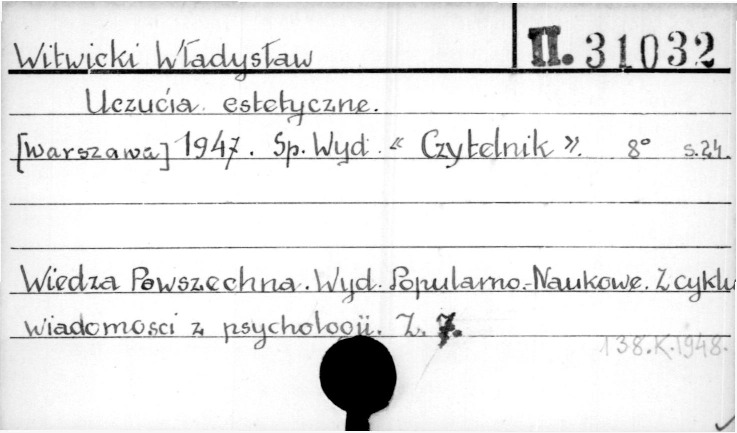 Witwicki Władysław II. 31032
Uczucia estetyczne.
[Warszawa] 1947. Sp. Wyd. « Czytelnik ». 8° s. 24.
Wiedza Powszechna. Wyd. Popularno-Naukowe. Z cyklu
wiadomosci z psychologji. Z. 7.
138.K.1948.